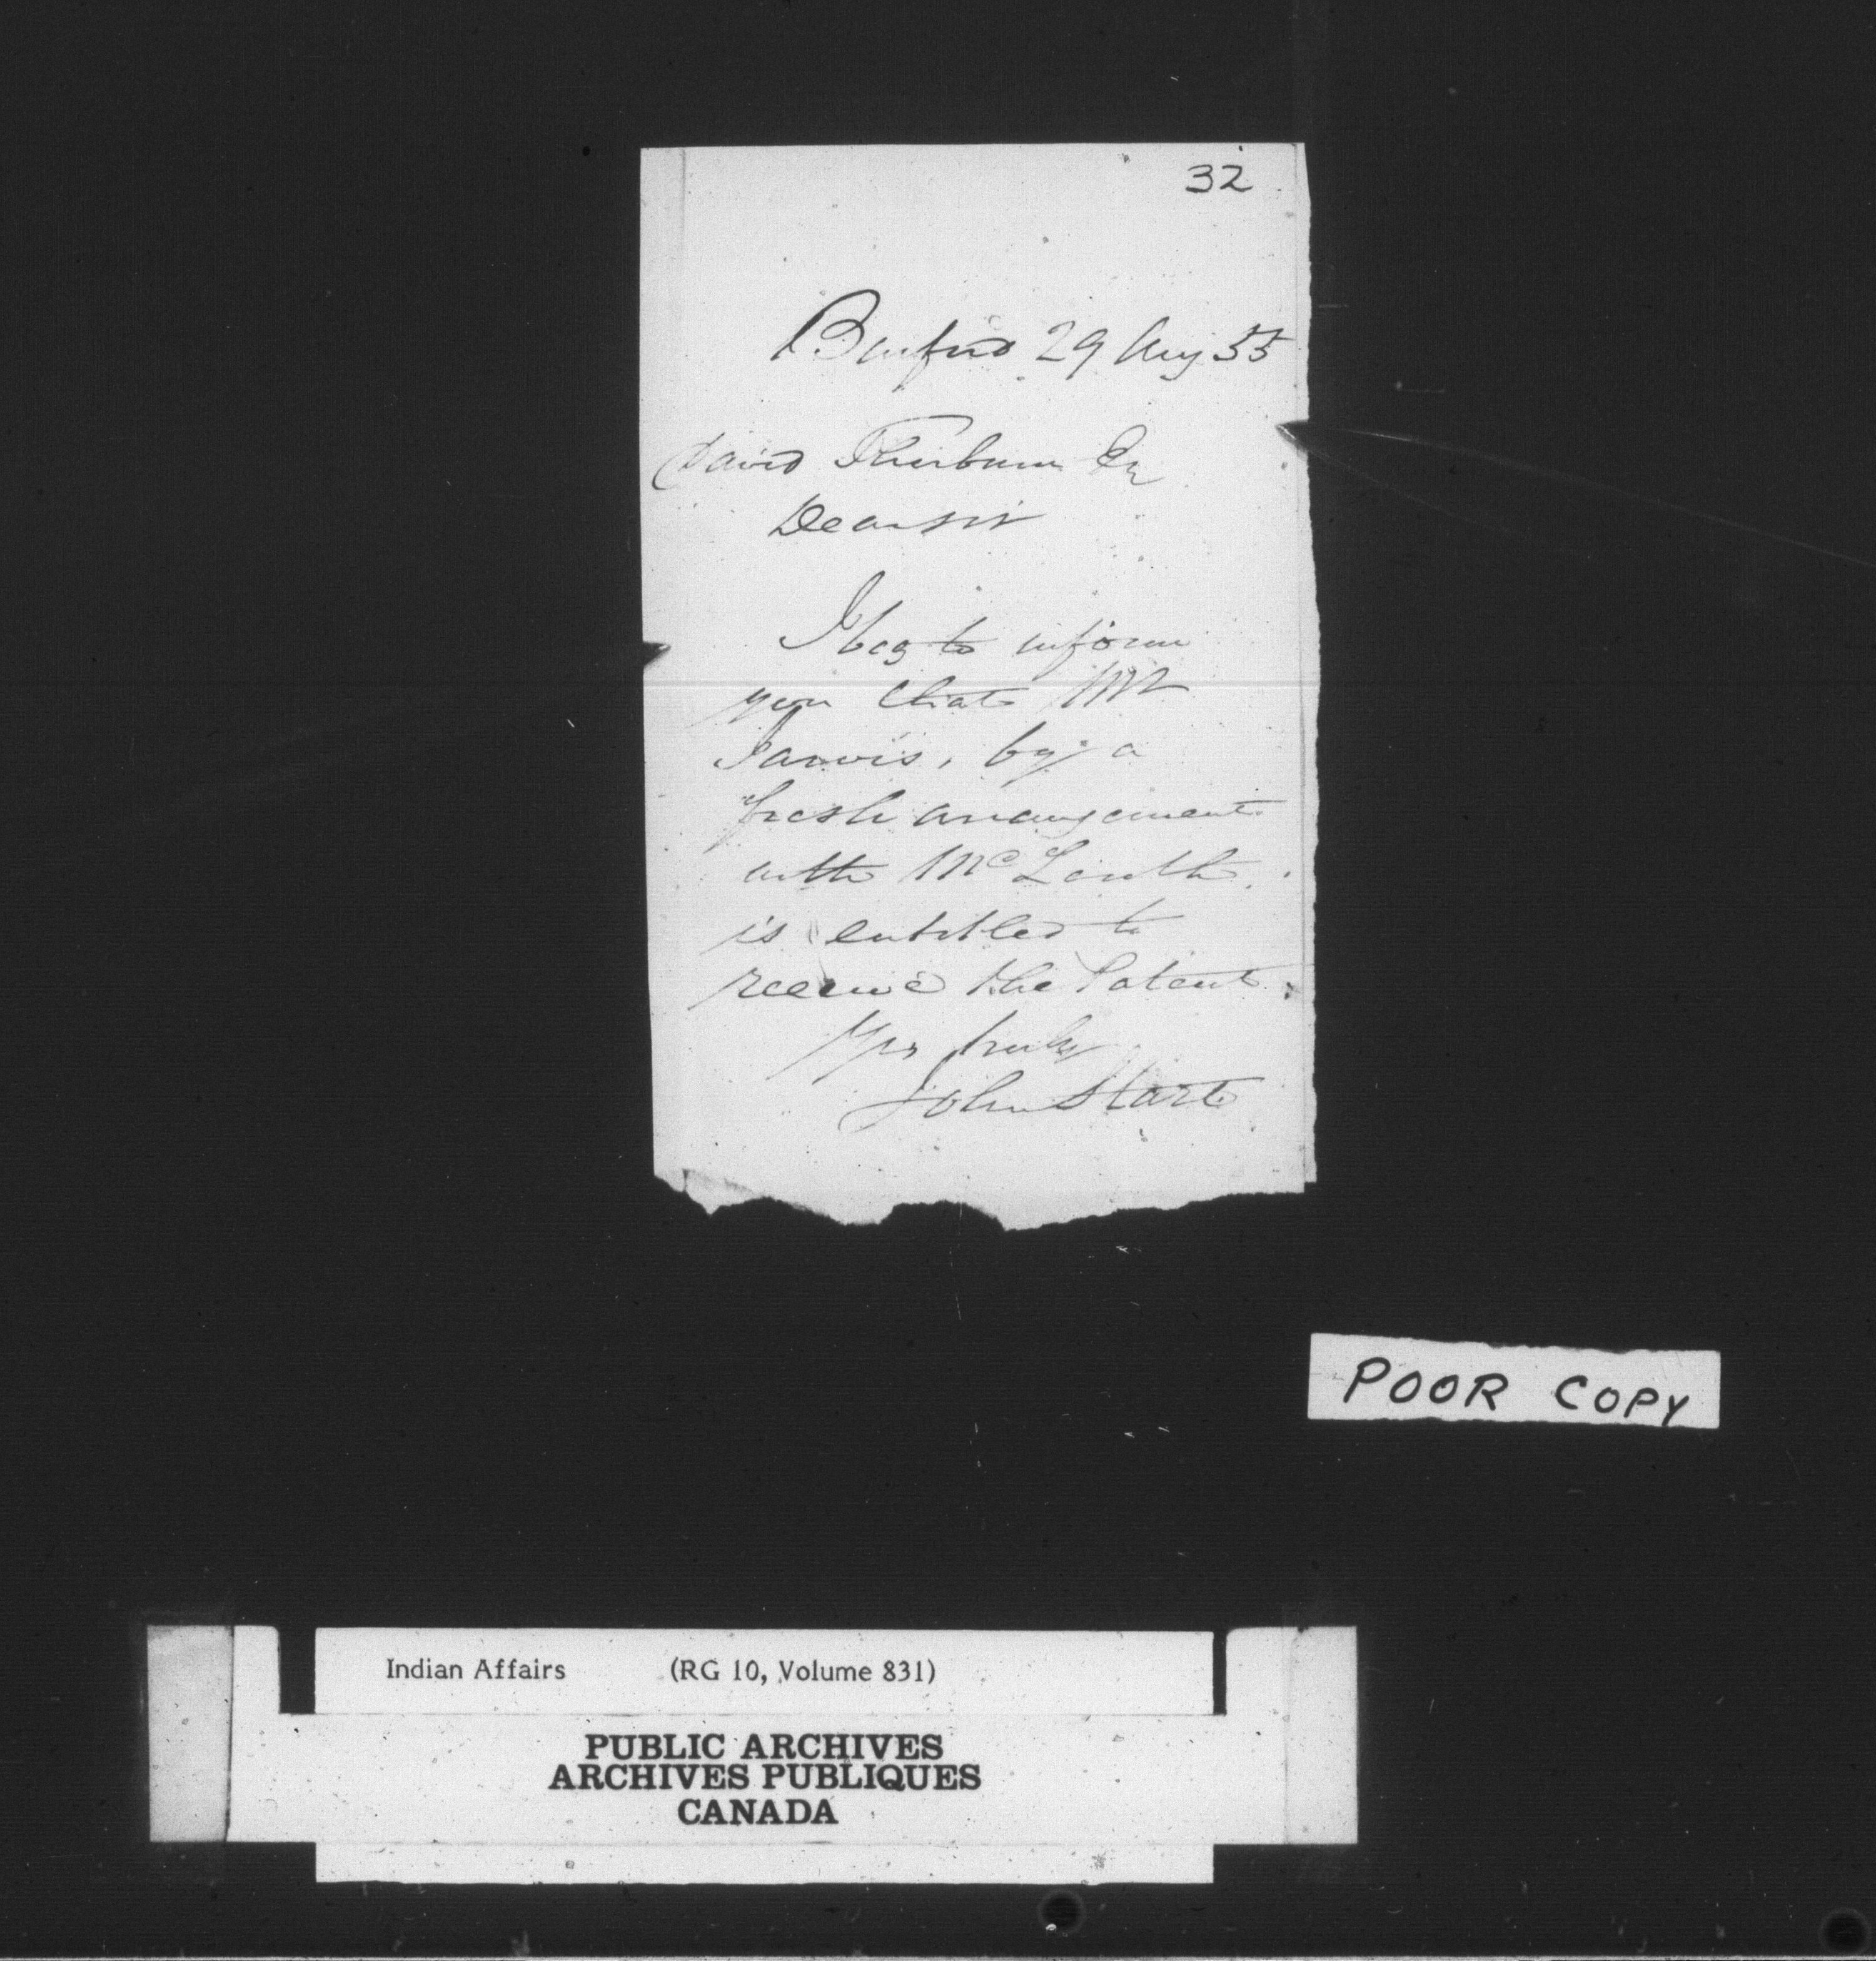 32
Burford 29 Aug 55
David Thorburn Esq
Dear sir
I beg to inform
you that Mr
Jarvis, by a
fresh arrangement
with McLouth
is entitled to
receive the Patent.
Yrs truly
John Start
POOR COPY
Indian Affairs (RG 10, Volume 831)
PUBLIC ARCHIVES
ARCHIVES PUBLIQUES
CANADA